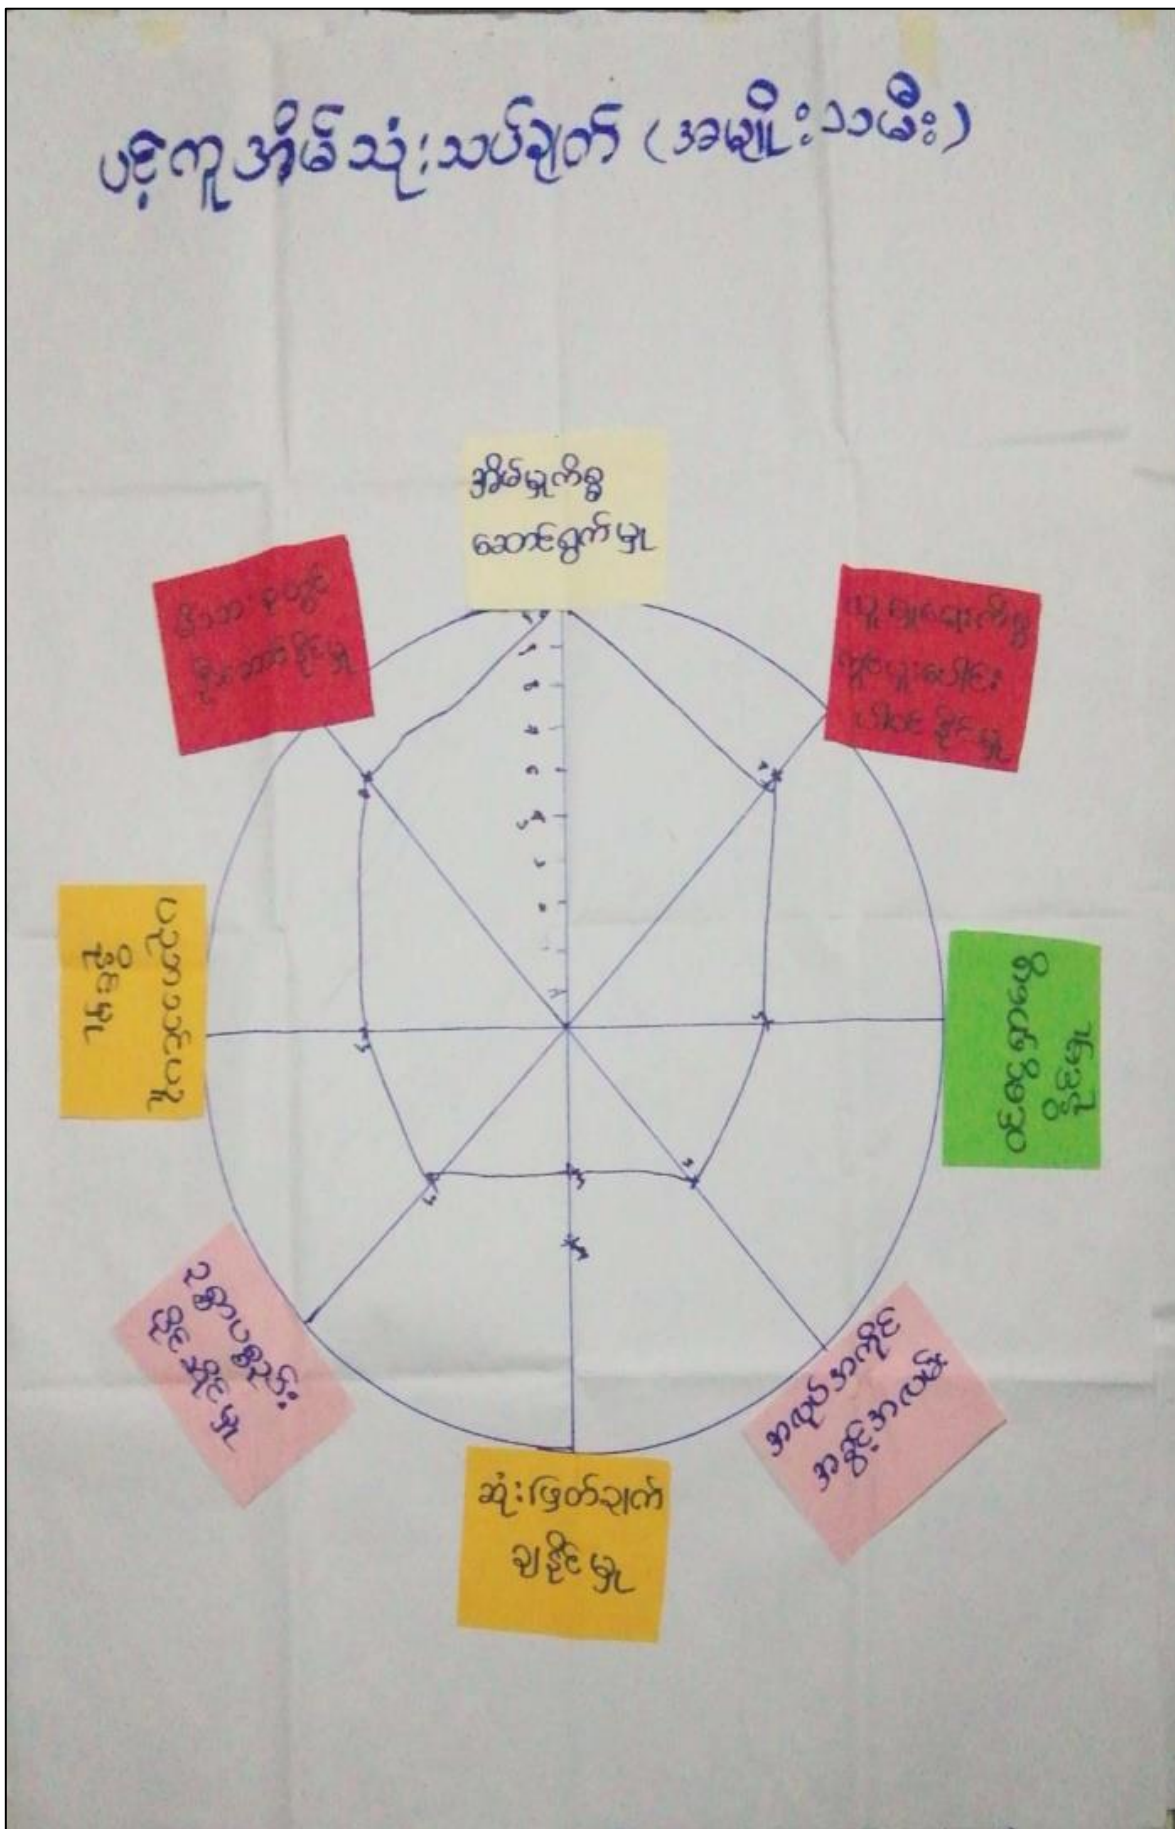 ပင့်ကူအိမ်သုံးသပ်ချက် (အမျိုးသမီး)
အိမ်မှုကိစ္စ
ဆောင်ရွက်မှု
လူမှုရေးကိစ္စ
ပါဝင်နိုင်မှု
ဝင်ငွေရှာဖွေ
နိုင်မှု
အလုပ်အကိုင်
အခွင့်အလမ်း
ဆုံးဖြတ်ချက်
ချနိုင်မှု
ဥစ္စာပစ္စည်း
ပိုင်ဆိုင်မှု
ပညာသင်ယူ
နိုင်မှု